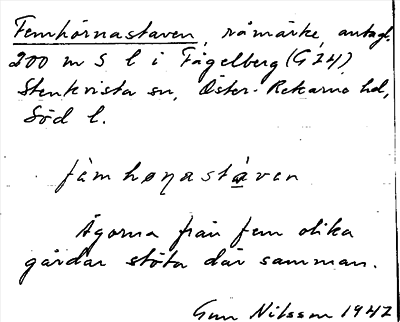 Femhörnastaven, råmärke, antagl.
200 m S l i Fågelberg (G 14)
Stenkvista sn, Öster-Rekarne hd,
Söd l.
fàmhønastáven
Ägorna från fem olika
gårdar stöta där samman.
Gun Nilsson 1947